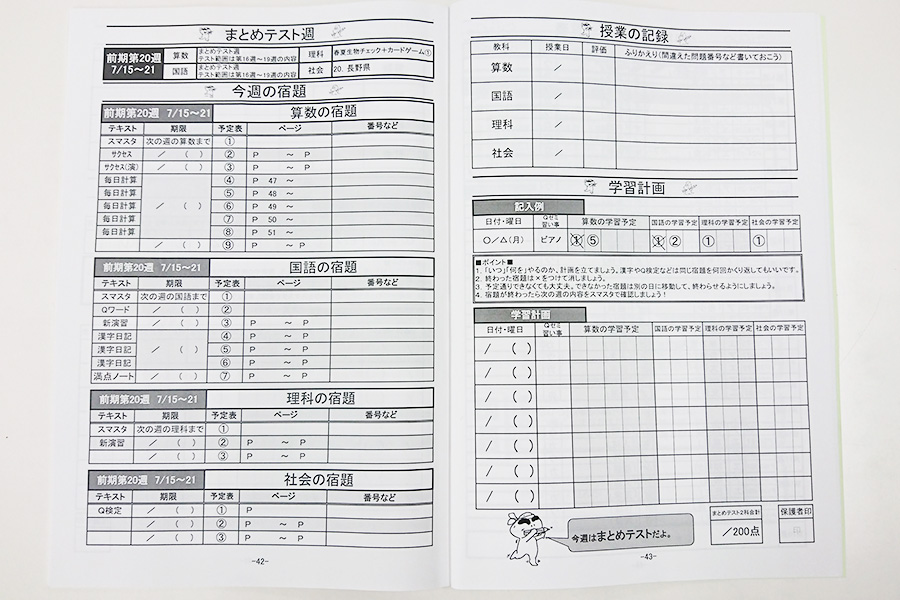 まとめテスト週
前期第20週 7/15～21
算数 まとめテスト週 テスト範囲は第16週～19週の内容 理科 春夏生物チェック+カードゲーム①
国語 まとめテスト週 テスト範囲は第16週～19週の内容 社会 20. 長野県
今週の宿題
前期第20週 7/15～21 算数の宿題
テキスト 期限 予定表 ページ 番号など
スマスタ 次の週の算数まで ①
サクセス / ( ) ② P ～ P
サクセス(演) / ( ) ③ P ～ P
毎日計算 ④ P 47 ～
毎日計算 ⑤ P 48 ～
毎日計算 / ( ) ⑥ P 49 ～
毎日計算 ⑦ P 50 ～
毎日計算 ⑧ P 51 ～
/ ( ) ⑨ P ～ P
前期第20週 7/15～21 国語の宿題
テキスト 期限 予定表 ページ 番号など
スマスタ 次の週の国語まで ①
Qワード / ( ) ②
新演習 / ( ) ③ P ～ P
漢字日記 ④ P ～ P
漢字日記 / ( ) ⑤ P ～ P
漢字日記 ⑥ P ～ P
満点ノート / ( ) ⑦ P ～ P
前期第20週 7/15～21 理科の宿題
テキスト 期限 予定表 ページ 番号など
スマスタ 次の週の理科まで ①
新演習 / ( ) ② P ～ P
/ ( ) ③ P ～ P
前期第20週 7/15～21 社会の宿題
テキスト 期限 予定表 ページ 番号など
Q検定 / ( ) ① P
/ ( ) ② P ～ P
/ ( ) ③ P ～ P
-42-
授業の記録
教科 授業日 評価 ふりかえり(間違えた問題番号など書いておこう)
算数 /
国語 /
理科 /
社会 /
学習計画
記入例
日付・曜日 Qゼミ 習い事 算数の学習予定 国語の学習予定 理科の学習予定 社会の学習予定
○/△(月) ピアノ ① ⑤ ① ② ① ①
■ポイント■
1. 「いつ」「何を」やるのか、計画を立てましょう。漢字やQ検定などは同じ宿題を何回かくり返してもいいです。
2. 終わった宿題は×をつけて消しましょう。
3. 予定通りできなくても大丈夫。できなかった宿題は別の日に移動して、終わらせるようにしましょう。
4. 宿題が終わったら次の週の内容をスマスタで確認しましょう！
学習計画
日付・曜日 Qゼミ 習い事 算数の学習予定 国語の学習予定 理科の学習予定 社会の学習予定
/ ( )
/ ( )
/ ( )
/ ( )
/ ( )
/ ( )
/ ( )
今週はまとめテストだよ。
まとめテスト2科合計
/200点
保護者印
印
-43-